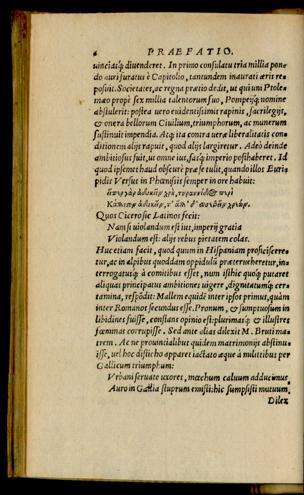 6 PRAEFATIO.
uincialq́; diuenderet. In primo consulatu tria millia pon-
do auri furatus è Capitolio, tantundem inaurati æris re-
posuit. Societates, ac regna pratio dedit, ut qui uni Ptole-
mæo propè sex millia talentorum suo, Pompeijq́; nomine
abstulerit: postea uero euidentissimis rapinis, sacrilegijs,
& onera bellorum Ciuilium, triumphorum, ac munerum
sustinuit impendia. Atq; ita contra ueræ liberalitatis con-
ditionem alijs rapuit, quod alijs largiretur. Adeò deinde
ambitiosus fuit, ut omne ius, fasq́; imperio posthaberet. Id
quod ipsemet haud obscurè præ se tulit, quando illos Euri-
pidis Versus in Phœnissis semper in ore habuit:
Quos Cicero sic Latinos fecit:
Nam si uiolandum est ius, imperij gratia
Violandum est: alijs rebus pietatem colas.
Huc etiam facit, quod quum in Hispaniam proficiscere-
tur, ac in alpibus quoddam oppidulū præterueheretur, in-
terrogatusq́; à comitibus esset, num isthic quoq; putaret
aliquas principatus ambitiones uigere, dignitatumq́; cer-
tamina, respōdit: Mallem equidē inter ipsos primus, quàm
inter Romanos secundus esse. Pronum, & sumptuosum in
libidines fuisse, constans opinio est: plurimasq́; & illustres
fœminas corrupisse. Sed ante alias dilexit M. Bruti ma-
trem. Ac ne prouincialibus quidem matrimonijs abstinu-
isse, uel hoc disticho apparet iactato æque à militibus per
Gallicum triumphum:
Vrbani seruate uxores, mœchum caluum adducimus,
Auro in Gallia stuprum emisti: hic sumpsisti mutuum.
Dilex